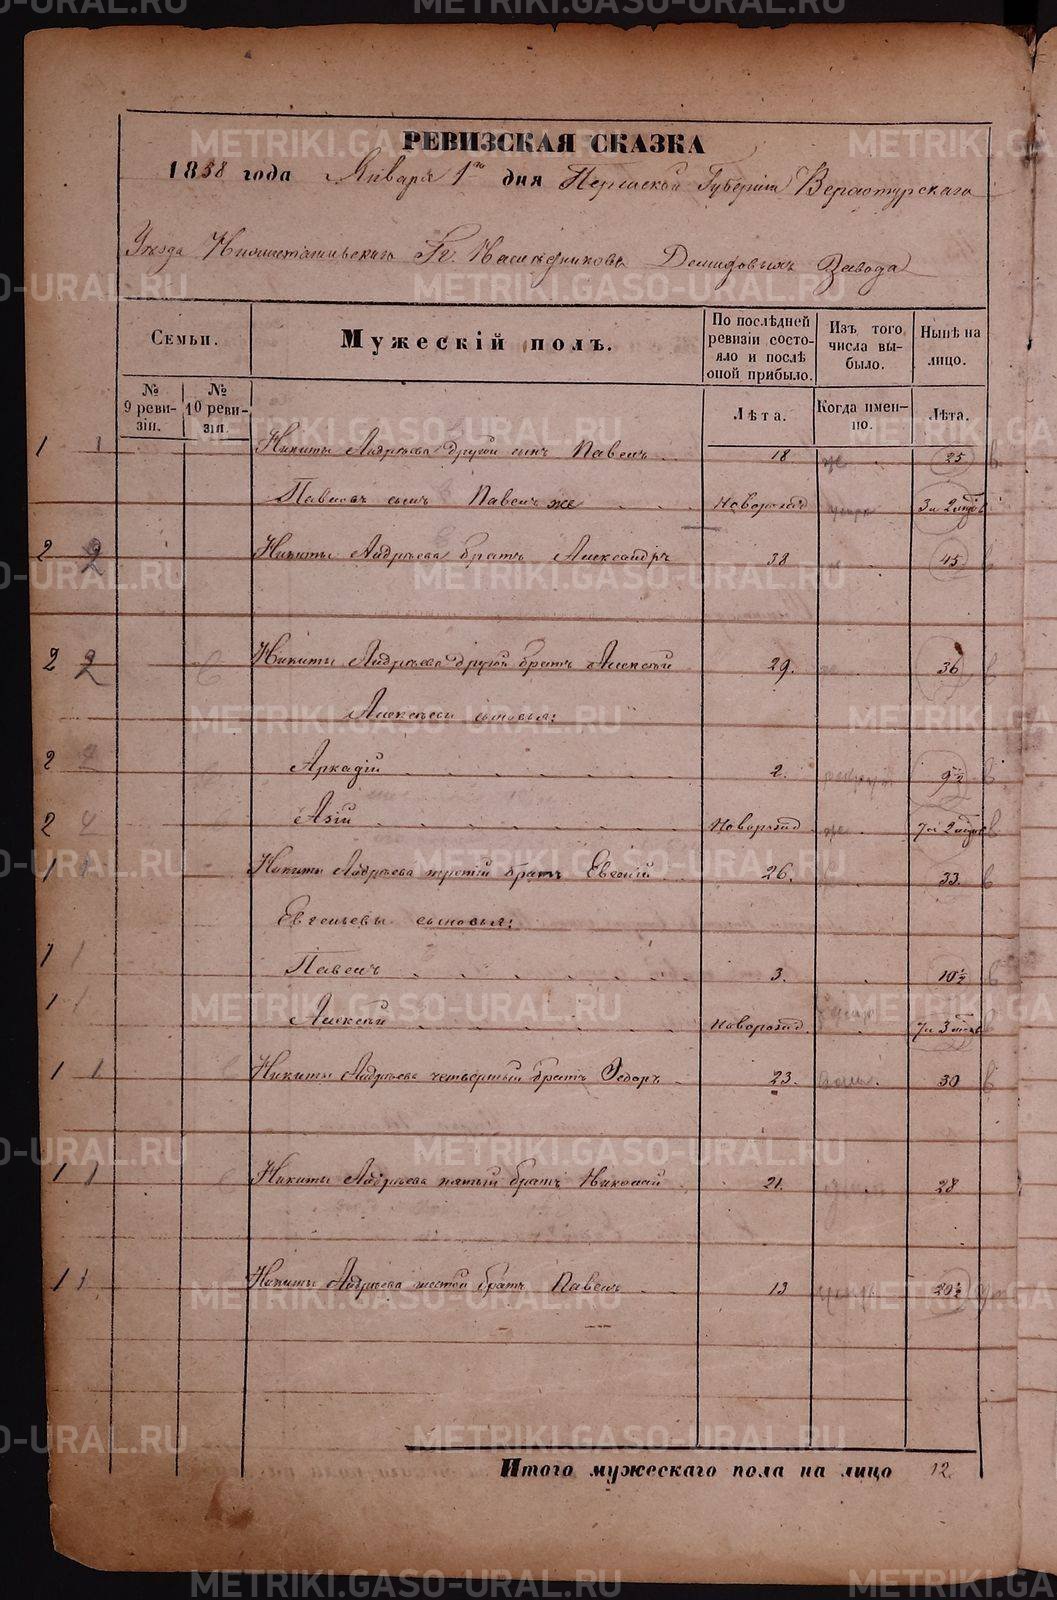 РЕВИЗСКАЯ СКАЗКА
1858 года Января 1го дня Пермской Губерніи Верхотурскаго
Уезда Нижнетагильскаго Гг. Наследниковъ Демидовыхъ Завода
Семьи.
Мужескій полъ.
По послѣдней ревизіи состояло и послѣ оной прибыло.
Изъ того числа выбыло.
Нынѣ на лицо.
№ 9 ревизіи.
№ 10 ревизіи.
Лѣта.
Когда именно.
Лѣта.
1 1 Никиты Андреева другой сынъ Павелъ 18 25
Павловъ сынъ Павелъ же Новорожд 3 и 2 мцов
2 2 Никиты Андреева братъ Александръ 38 45
2 2 Никиты Андреева другой братъ Алексей 29. 36
Алексеевы сыновья:
2 4 Аркадій 2. 9½
2 4 Азій Новорожд 7 и 2 мцов
1 1 Никиты Андреева третій братъ Евгеній 26. 33.
Евгеньевы сыновья:
1 1 Павелъ 3. 10½
1 1 Алексей Новорожд. 7 и 3 мцов
1 1 Никиты Андреева четвертый братъ Федоръ 23. 30
1 1 Никиты Андреева пятый братъ Николай 21. 28
1 1 Никиты Андреева шестой братъ Павелъ 13 20½
Итого мужескаго пола на лицо 12.
METRIKI.GASO-URAL.RU